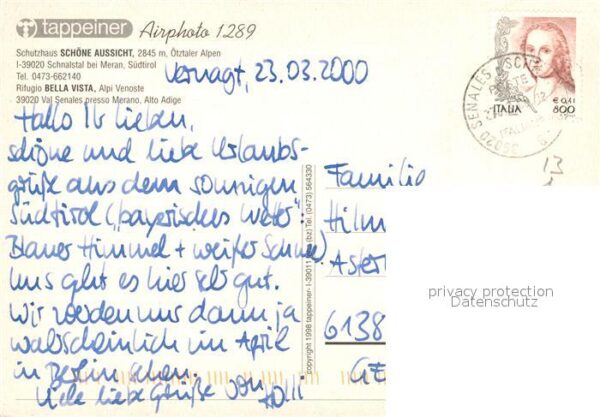 tappeiner Airphoto 1289
Schutzhaus SCHÖNE AUSSICHT, 2845 m, Ötztaler Alpen
I-39020 Schnalstal bei Meran, Südtirol
Tel. 0473-662140
Rifugio BELLA VISTA, Alpi Venoste
39020 Val Senales presso Merano, Alto Adige
Vernagt, 23.03.2000
Hallo Ihr Lieben,
schöne und liebe Urlaubs-
grüße aus dem sonnigen
Südtirol („bayerisches Wetter":
Blauer Himmel + weißer Schnee).
Uns geht es hier sehr gut.
Wir werden uns dann ja
wahrscheinlich im April
in Berlin sehen.
Viele liebe Grüße von
copyright 1998 tappeiner
(bz) Tel. (0473) 564330
Familie
Hilm
Aster
6138
SENALES
POSTE
39020
ITALIA
€ 0,41
800
13
privacy protection
Datenschutz